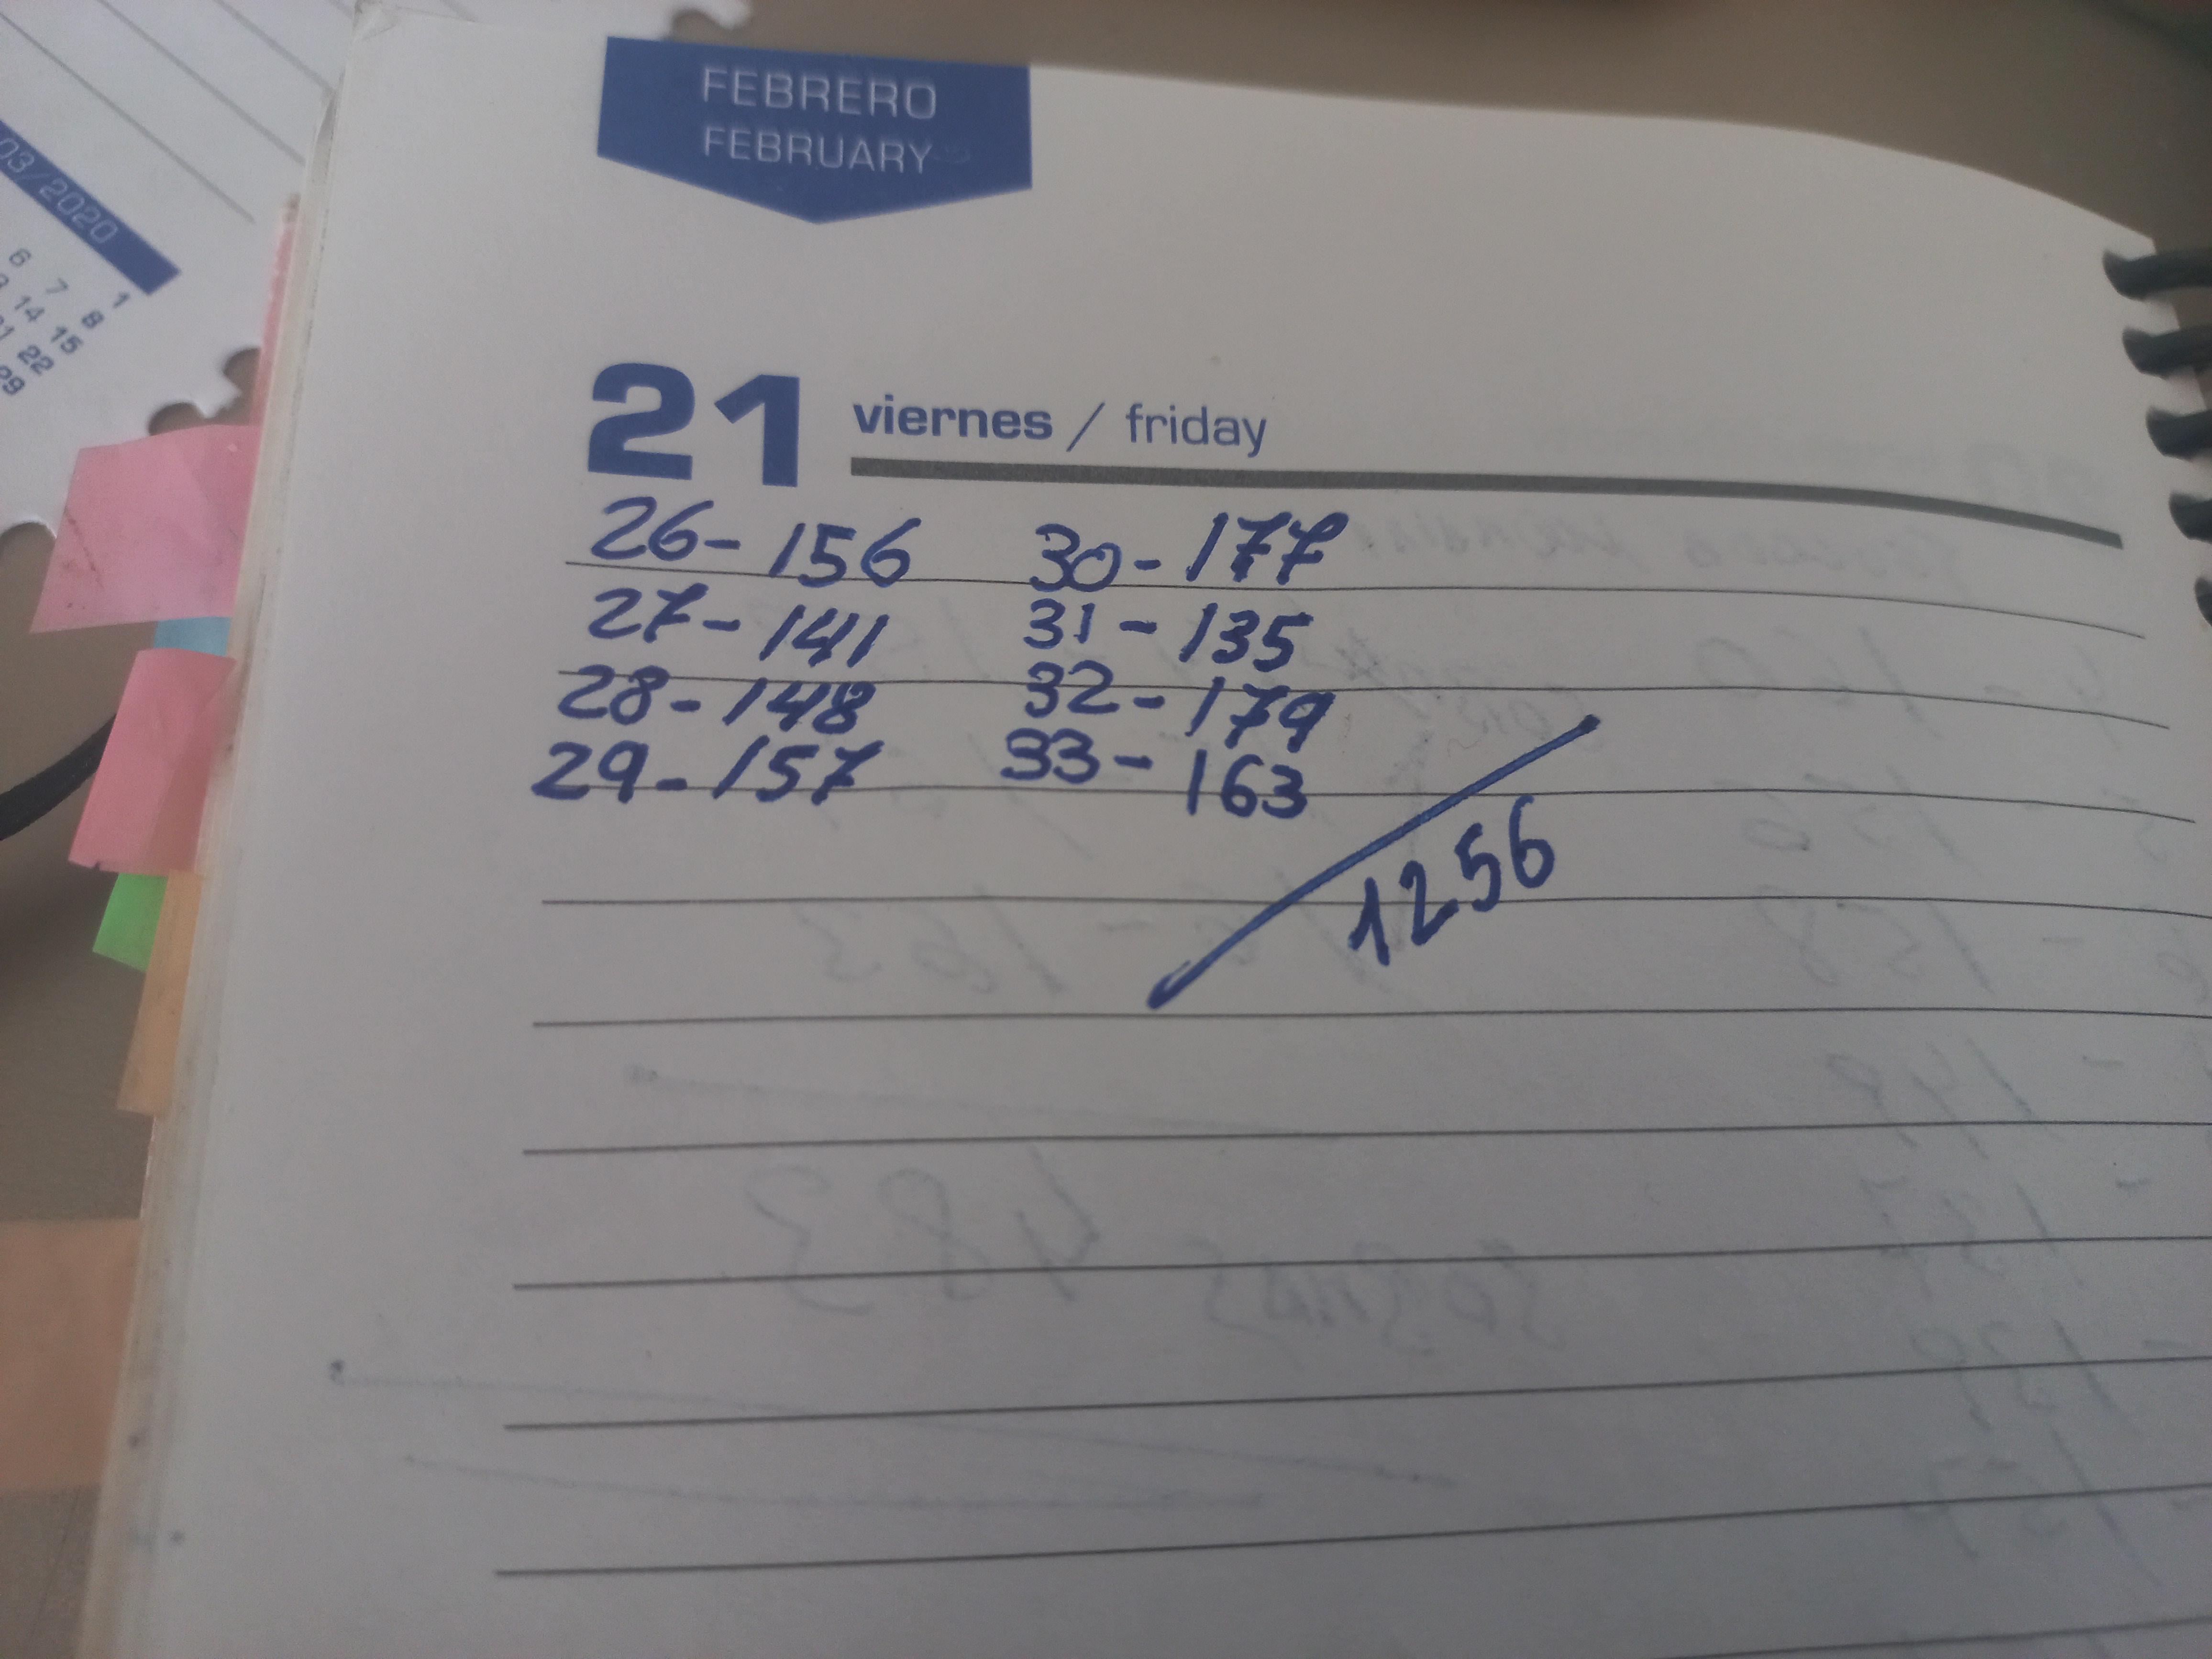 FEBRERO
FEBRUARY
21 viernes / friday
26-156 30-177
27-141 31-135
28-148 32-179
29-157 33-163
1256
03/2020
1
6 7 8
14 15
22
29